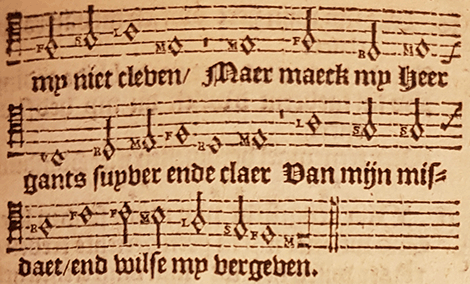 F S L M M F R M
my niet cleven/ Maer maeck my Heer
V R M F R M L S S
gants ſuyver ende claer Van mijn miſ⸗
R F F M L S F M
daet/end wilſe my vergeven.